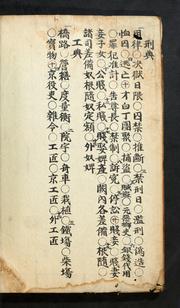 刑典
○用律○決獄日限○囚禁○推斷○禁刑日○濫刑○僞造○
恤囚○逃亡○才白丁團聚○捕盜○贓盜○元惡鄕吏○銀錢代用
○罪犯準計○告尊長○禁制○訴寃○停訟○賤妾○賤妻
妾子女○公賤○私賤○賤娶婢產○闕內各差備○根隨○
諸司差備奴根隨奴定額○外奴婢
工典
○橋路○營繕○度量衡○院宇○舟車○栽植○鐵場○柴場
○寶物○京役吏○雜令○工匠○京工匠○外工匠